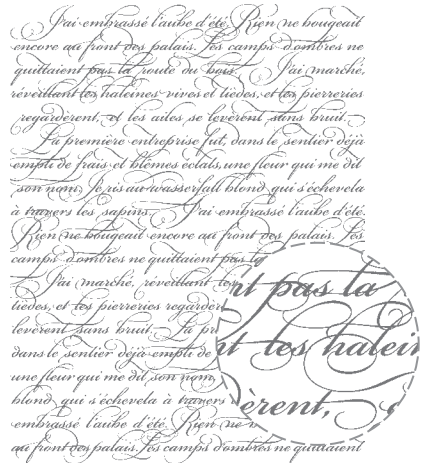 J'ai embrassé l'aube d'été. Rien ne bougeait
encore au front des palais. Les camps d'ombres ne
quittaient pas la route du bois. J'ai marché,
réveillant les haleines vives et tièdes, et les pierreries
regardèrent, et les ailes se levèrent sans bruit.
La première entreprise fut, dans le sentier déjà
empli de frais et blêmes éclats, une fleur qui me dit
son nom. Je ris au wasserfall blond qui s'échevela
à travers les sapins. J'ai embrassé l'aube d'été.
Rien ne bougeait encore au front des palais. Les
camps d'ombres ne quittaient pas la
J'ai marché, réveillant les
tièdes, et les pierreries regardèr
levèrent sans bruit. La pr
dans le sentier déjà empli de
une fleur qui me dit son nom.
blond qui s'échevela à travers
embrassé l'aube d'été. Rien ne
au front des palais. Les camps d'ombres ne quittaient
nt pas la
nt les halein
èrent,